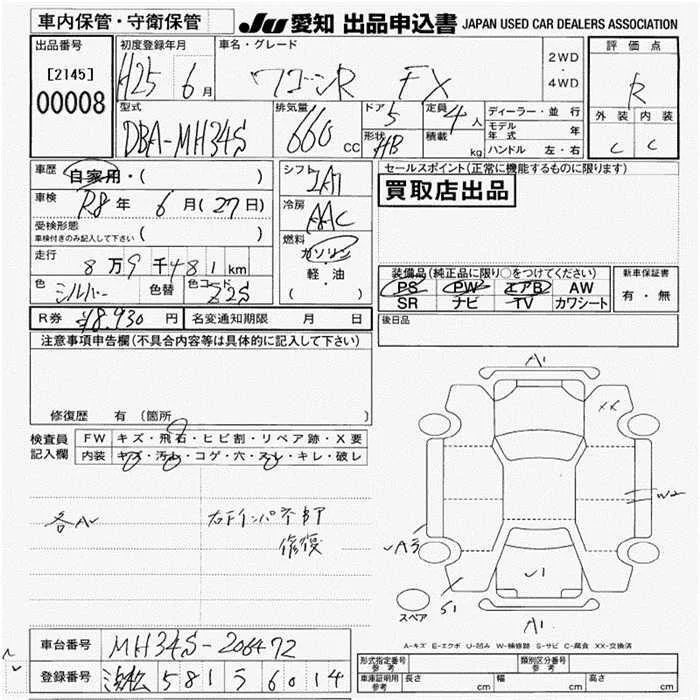 車内保管・守衛保管
JU 愛知 出品申込書 JAPAN USED CAR DEALERS ASSOCIATION
出品番号
[2145]
00008
初度登録年月
H25 6月
車名・グレード
ワゴンR FX
2WD
・
4WD
評価点
R
外装 内装
C C
型式
DBA-MH34S
排気量
660 cc
ドア 5
形状 HB
定員 4人
積載 kg
ディーラー・並行
モデル年式 年
ハンドル 左・右
車歴 自家用・( )
車検 R8年 6月(27日)
受検形態
車検付きのみ記入して下さい ( )
走行 8万9千481km
色 シルバー 色替 色コード Z2S
シフト IAT
冷房 AAC
燃料
ガソリン
・
軽・油
( )
セールスポイント(正常に機能するものに限ります)
買取店出品
装備品(純正品に限り○をつけてください)
PS PW エアB AW
SR ナビ TV カワシート
新車保証書
有・無
R券 ¥8,930円 名変通知期限 月 日
後日品
注意事項申告欄(不具合内容等は具体的に記入して下さい)
修復歴 有(箇所 )
検査員記入欄
FW キズ・飛石・ヒビ割・リペア跡・X要
内装 キズ・汚れ・コゲ・穴・スレ・キレ・破レ
各A
右Fインパネ
修復
A1
XX
W2
A3
S1
A1
スペア
A-キズ E-エクボ U-凹み W-補修跡 S-サビ C-腐食 XX-交換済
車台番号 MH34S-206472
登録番号 浜松 581 ラ 6014
形式指定番号 参考
類別区分番号 参考
車庫証明用 参考 長さ cm 幅 cm 高さ cm